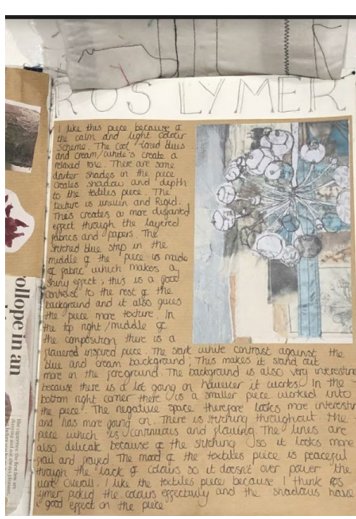 ROS LYMER
I like this piece because of
the calm and light colour
Scheme. The cool toned blues
and cream/white's create a
relaxed tone. There are some
darker shades in the piece
creates shadow and depth
to the textiles piece. The
texture is uneven and Rigid.
This creates a more disjointed
effect through the layered
fabrics and papers. The
stitched blue strip in the
middle of the piece is made
of fabric which makes a
shiny effect, this is a good
contrast to the rest of the
background and it also gives
the piece more texture. In
the top right/middle of
the composition there is a
flowered inspired piece. The stark white contrast against the
blue and cream background. This makes it stand out
more in the foreground. The background is also very interesting
because there is a lot going on however it works. In the
bottom right corner there is a smaller piece worked into
the piece. The negative space therefore looks more interesting
and has more going on. There is stitching throughout the
piece which is continuous and flowing. The lines are
also delicate because of the stitching so it looks more
frail and frayed. The mood of the textiles piece is peaceful
through the lack of colours so it doesn't over power the
work. Overall I like the textiles piece because I think Ros
Lymer the colours effectively and the shadows have
a good effect on the piece
ollope in an